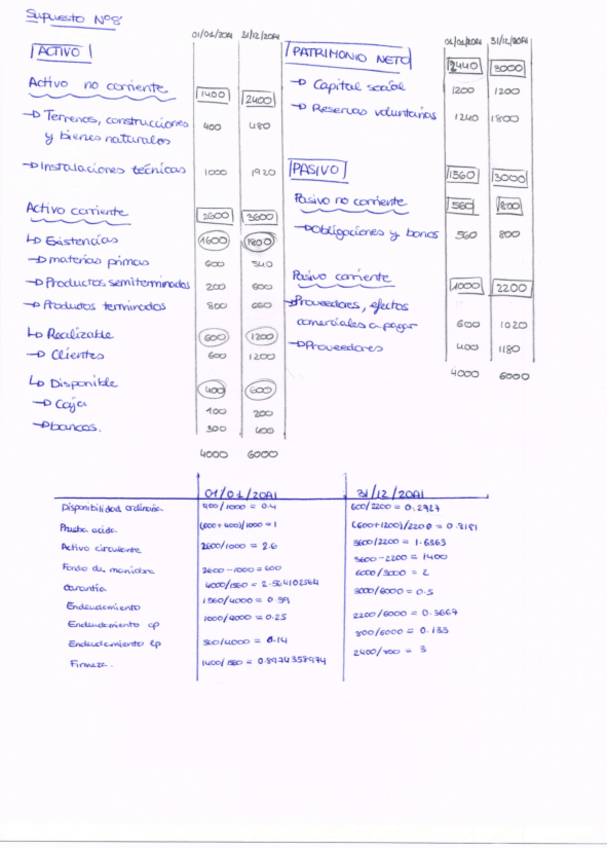 Supuesto Nº8
01/01/20A1 31/12/20A1
ACTIVO
Activo no corriente 1400 2400
→ Terrenos, construcciones y bienes naturales 400 480
→ Instalaciones técnicas 1000 1920
Activo corriente 2600 3600
↳ Existencias 1600 1800
→ materias primas 600 540
→ Productos semiterminados 200 600
→ Productos terminados 800 660
↳ Realizable 600 1200
→ Clientes 600 1200
↳ Disponible 400 600
→ Caja 100 200
→ bancos. 300 400
4000 6000
01/01/20A1 31/12/20A1
PATRIMONIO NETO 2440 3000
→ Capital social 1200 1200
→ Reservas voluntarias 1240 1800
PASIVO 1560 3000
Pasivo no corriente 560 800
→ Obligaciones y bonos 560 800
Pasivo corriente 1000 2200
→ Proveedores, efectos comerciales a pagar 600 1020
→ Proveedores 400 1180
4000 6000
01/01/20A1 31/12/20A1
Disponibilidad ordinaria 400/1000 = 0.4 600/2200 = 0.2727
Prueba acida (600+400)/1000 = 1 (600+1200)/2200 = 0.8181
Activo circulante 2600/1000 = 2.6 3600/2200 = 1.6363
Fondo de maniobra 3600-2200 = 1400
Garantia 4000/1560 = 2.564102564 6000/3000 = 2
Endeudamiento 1560/4000 = 0.39 3000/6000 = 0.5
Endeudamiento cp 1000/4000 = 0.25 2200/6000 = 0.3667
Endeudamiento lp 560/4000 = 0.14 800/6000 = 0.133
Firmeza. 2400/800 = 3